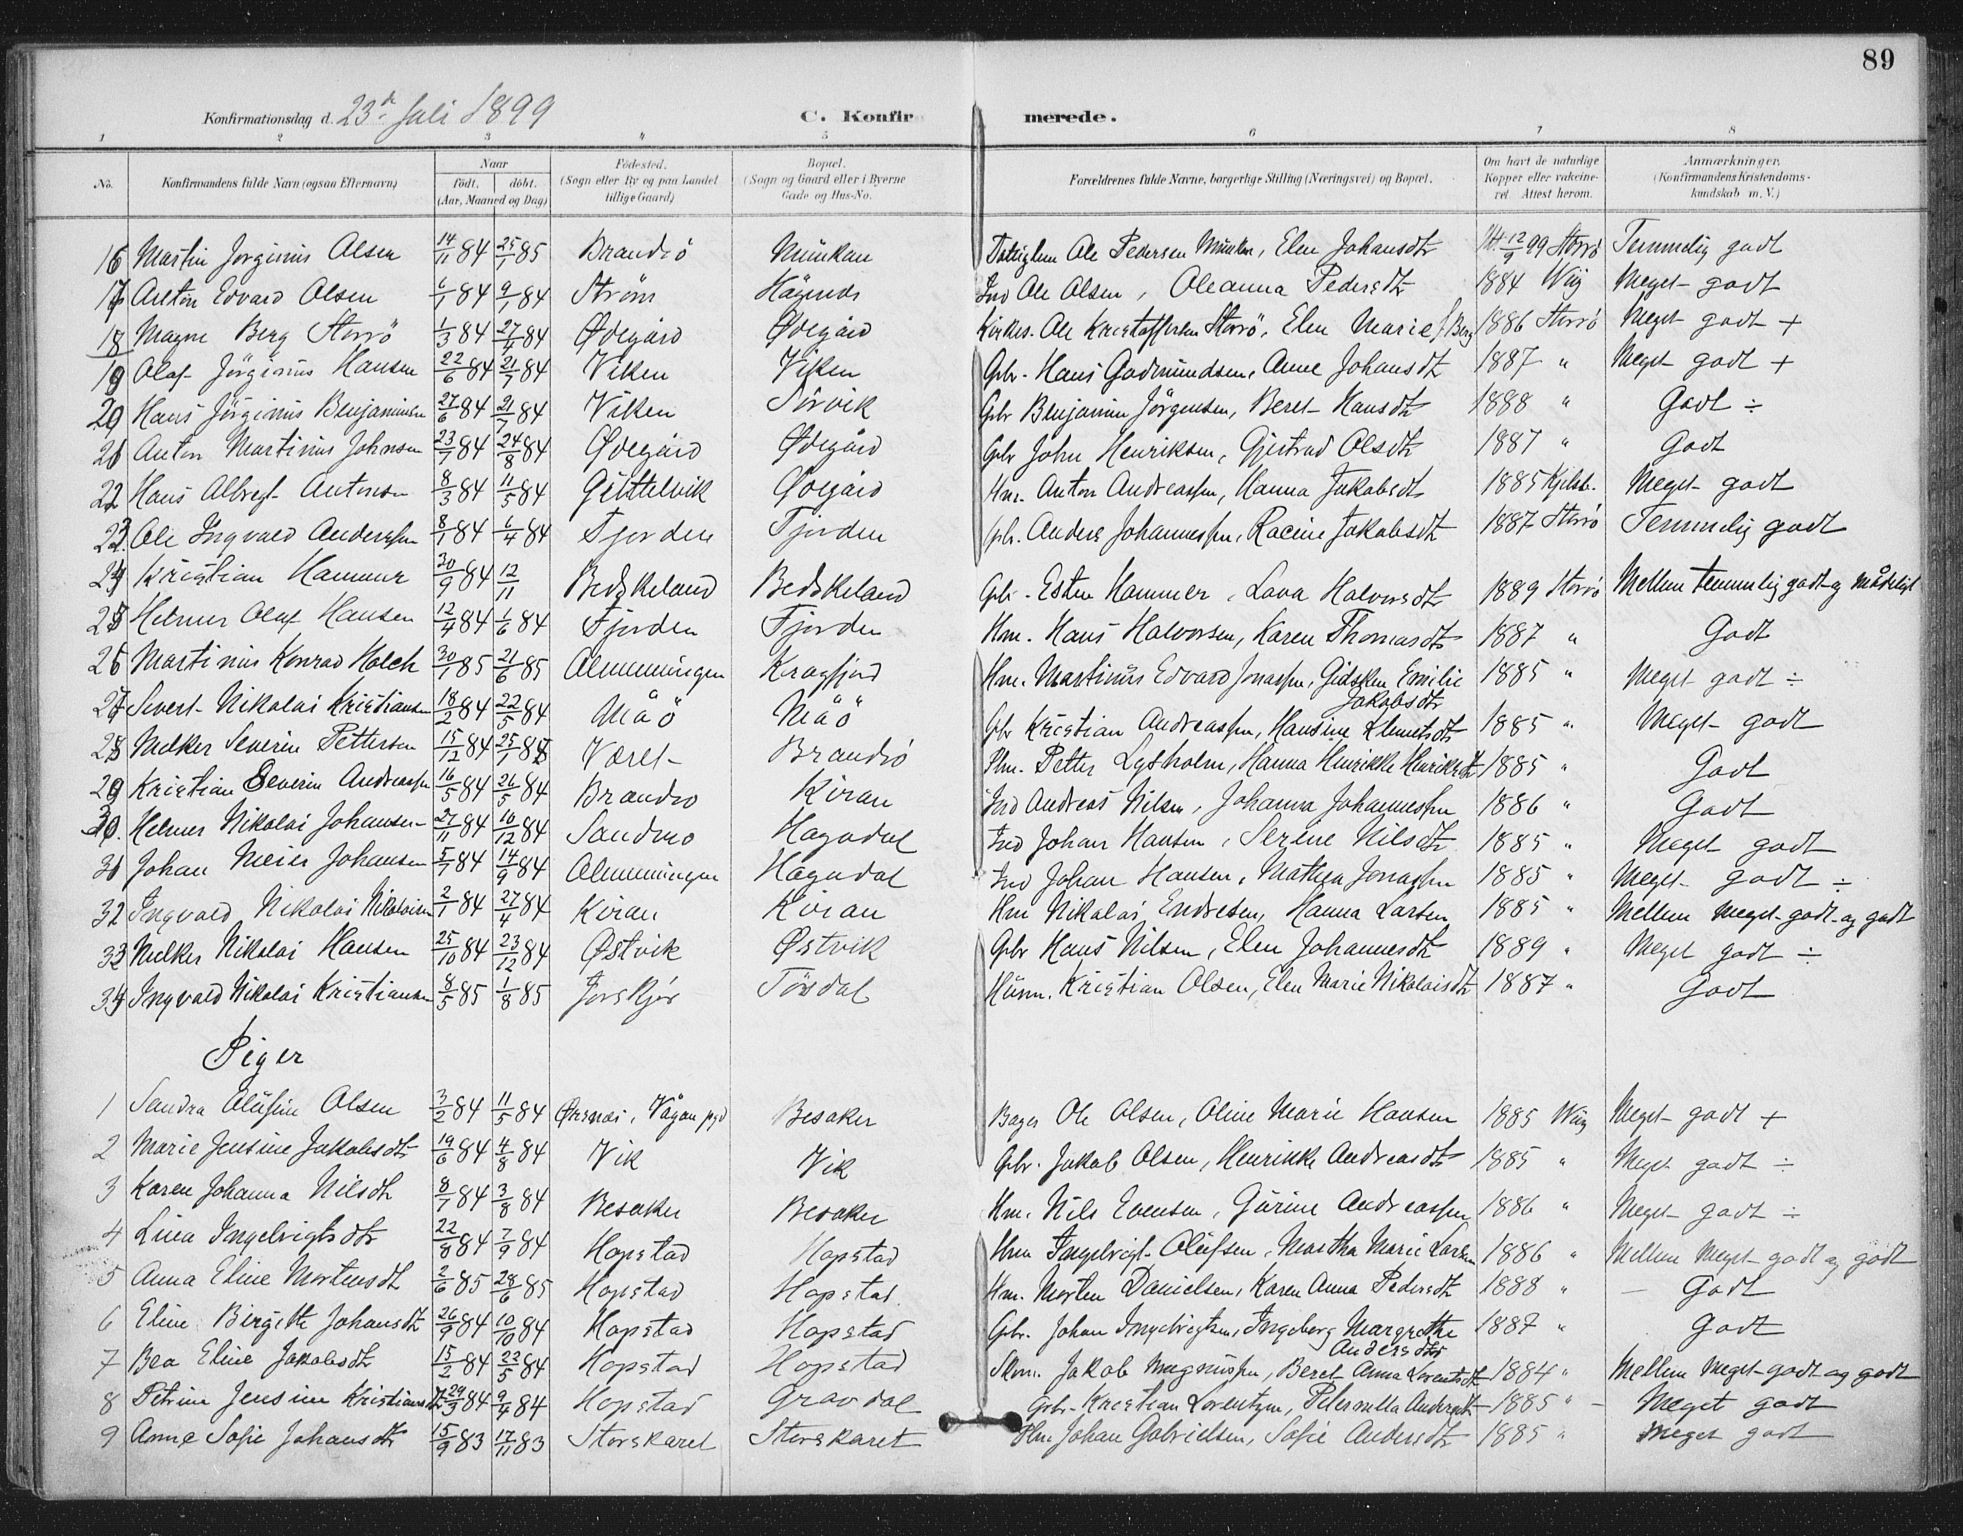 89
Konfirmationsdag d. 23de Juli 1899 C. Konfirmerede.
1 2 3 4 5 6 7 8
No. Konfirmandens fulde Navn (ogsaa Efternavn) Naar født. døbt. (Aar, Maaned og Dag) Fødested. (Sogn eller By og paa Landet tillige Gaard) Bopæl. (Sogn og Gaard eller i Byerne Gade og Hus-No. Forældrenes fulde Navne, borgerlige Stilling (Næringsvei) og Bopæl. Om havt de naturlige Kopper eller vaccineret. Attest herom. Anmærkninger. (Konfirmandens Kristendomskundskab m. V.)
16 Martin Jørginus Olsen 14/11 84 25/1 85 Brandsö Munkan Ole Pedersen Munken, Elen Johansdtr 12/9 99 Storrö Temmelig godt
17 Anton Edvard Olsen 6/1 84 9/1 84 Ström Ind Ole Olsen, Oleanna Pedersdtr 1884 Wiig Meget godt
18 Magne Berg Storrö 1/3 84 27/4 84 Ødegård Ødegård Kirkes. Ole Kristoffersen Storrö, Elen Marie f. Berg 1886 Storrö Meget godt +
19 Olaf Jörginus Hansen 22/6 84 21/7 84 Viken Viken Gbr. Hans Gudmundsen, Anne Johansdtr 1887 " Meget godt +
20 Hans Jörginus Benjaminsen 27/6 84 21/7 84 Viken Sörvik Gbr Benjamin Jörgensen, Beret Hansdtr 1888 " Godt ÷
21 Anton Martinus Johnsen 23/7 84 24/8 84 Ødegård Ødegård Gbr John Henriksen, Gjertrud Olsdtr 1887 " Godt
22 Hans Albregt Antonsen 8/3 84 11/5 84 Gittelvik Ødegård Hm. Anton Andreassen, Hanna Jakobsdtr 1885 Kjelsb. Meget godt
23. Ole Ingvald Anderssen 8/1 84 6/4 84 Fjorden Fjorden Gbr. Anders Johannessen, Racine Jakobsdtr 1887 Storrö Temmelig godt
24 Kristian Hammer 30/9 84 12/11 Bedskeland Bedskeland Gbr. Esten Hammer, Lava Halvorsdtr 1889 Storrö Mellem temmelig godt og mådeligt
25 Helmer Olaf Hansen 12/4 84 1/6 84 Fjorden Fjorden Hm. Hans Halvorsen, Karen Thomasdtr 1887 " Godt
26 Martinus Konrad Holck 30/1 85 21/6 85 Almenningen Kragfjord Hm. Martinus Edvard Jonassen, Gidsken Emilie Jakobsdtr 1885 " Meget godt ÷
27 Sivert Nikolai Kristiansen 18/2 84 22/5 84 Måö Måö Gbr Kristian Andreassen, Hansine Klemetsdtr 1885 " Meget godt
28 Melker Severin Pettersen 15/12 84 25/1 85 Været Brandsö Plm. Petter Lysholm, Hanna Henrikke Henriksdtr 1885 " Godt
29 Kristian Severin Andreassen 16/5 84 26/5 84 Brandsö Kiran Ind Andreas Nilsen, Johanna Johannessen 1886 " Godt
30. Helmer Nikolai Johansen 27/11 84 10/12 84 Sandmo Hagadal Ind Johan Hansen, Serine Nilsdtr 1885 " Meget godt
31 Johan Meier Johansen 5/7 84 14/9 84 Almenningen Hagadal Ind Johan Hansen, Mathea Jonassen 1885 " Meget godt ÷
32 Ingvald Nikolai Nikolaisen 2/1 84 27/4 84 Kiran Kiran Hm Nikolai Endresen, Hanna Larsen 1885 " Mellem Meget godt og godt
33 Melker Nikolai Hansen 25/10 84 23/12 84 Østvik Østvik Gbr Hans Nilsen, Elen Johannesdtr 1889 " Meget godt ÷
34 Ingvald Nikolai Kristiansen 8/5 85 1/8 85 Torskjör Tördal Husm. Kristian Olsen, Elen Marie Nikolaisdtr 1887 " Godt
Piger
1 Sandra Olufine Olsen 3/2 84 11/5 84 Øksnæs, Vågan pgd Besaker Bager Ole Olsen, Oline Marie Hansen 1885 Wiig Meget godt +
2 Marie Jensine Jakobsdtr 19/6 84 4/8 84 Vik Vik Gbr. Jakob Olsen, Henrikke Andreasdtr 1885 " Meget godt ÷
3 Karen Johanna Nilsdtr 8/7 84 3/8 84 Besaker Besaker Hm. Nils Evensen, Gurine Andreassen 1886 " Meget godt ÷
4 Lina Ingebrigtsdtr 22/8 84 7/9 84 Hopstad Hopstad Hm Ingebrigt Olufsen, Martha Marie Larsen 1886 " Mellem Meget godt og godt
5 Anna Eline Mortensdtr 2/6 85 28/6 85 Hopstad Hopstad Hm. Morten Danielsen, Karen Anna Pedersdtr 1888 " Godt
6 Eline Birgitte Johansdtr 26/9 84 10/10 84 Hopstad Hopstad Gbr. Johan Ingebrigtsen, Ingeborg Margrethe Andersdtr 1887 " Godt
7 Bea Eline Jakobsdtr 15/2 84 22/5 84 Hopstad Hopstad Skm. Jakob Magnussen, Beret Anna Lorentsdtr 1884 " Mellem Meget godt og godt
8 Petrine Jensine Kristiansdtr 29/3 84 9/4 84 Hopstad Gravdal Gbr. Kristian Lorentzen, Peternilla Andersdtr 1885 " Meget godt
9 Anne Sofie Johansdtr 15/9 83 17/11 83 Storskaret Storskaret Plm Johan Gabrielsen, Sofie Andersdtr 1885 " Meget godt